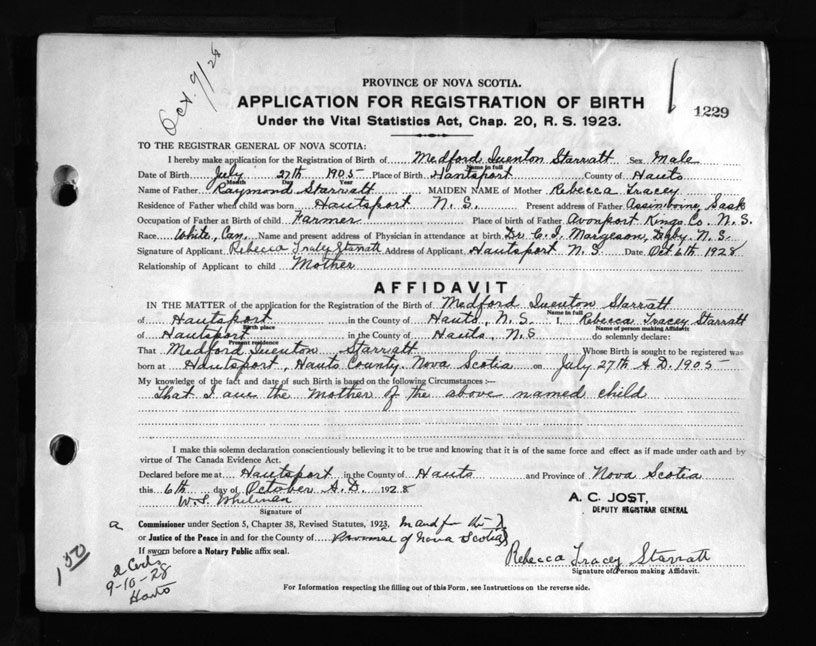 Oct. 9/28
PROVINCE OF NOVA SCOTIA.
APPLICATION FOR REGISTRATION OF BIRTH
1229
Under the Vital Statistics Act, Chap. 20, R. S. 1923.
TO THE REGISTRAR GENERAL OF NOVA SCOTIA:
I hereby make application for the Registration of Birth of Medford Suenton Starratt Sex Male
Name in full
Date of Birth July 27th 1905 Place of Birth Hantsport County of Hants
Month Day Year
Name of Father Raymond Starratt MAIDEN NAME of Mother Rebecca Tracey
Residence of Father when child was born Hantsport N. S. Present address of Father Assiniboine, Sask
Occupation of Father at Birth of child Farmer Place of birth of Father Avonport Kings Co. N. S.
Race White, Can. Name and present address of Physician in attendance at birth Dr. C. I. Margeson, Digby N. S.
Signature of Applicant Rebecca Tracey Starratt Address of Applicant Hantsport N. S. Date Oct. 6th 1928
Relationship of Applicant to child Mother
AFFIDAVIT
IN THE MATTER of the application for the Registration of the Birth of Medford Suenton Starratt
Name in full
of Hantsport in the County of Hants, N. S. I, Rebecca Tracey Starratt
Birth place Name of person making Affidavit
of Hantsport in the County of Hants, N. S do solemnly declare:
Present residence
That Medford Suenton Starratt Whose Birth is sought to be registered was
born at Hantsport, Hants County Nova Scotia on July 27th A.D. 1905
My knowledge of the fact and date of such Birth is based on the following Circumstances :—
That I am the Mother of the above named child
I make this solemn declaration conscientiously believing it to be true and knowing that it is of the same force and effect as if made under oath and by
virtue of The Canada Evidence Act.
Declared before me at Hantsport in the County of Hants and Province of Nova Scotia
this 6th day of October A.D. 1928
W. S. Whitman
Signature of
A. C. JOST,
DEPUTY REGISTRAR GENERAL
a Commissioner under Section 5, Chapter 38, Revised Statutes, 1923, In and for the
or Justice of the Peace in and for the County of Province of Nova Scotia
If sworn before a Notary Public affix seal.
Rebecca Tracey Starratt
Signature of Person making Affidavit.
1.50
a Cert.
9-10-28
Hants
For Information respecting the filling out of this Form, see Instructions on the reverse side.